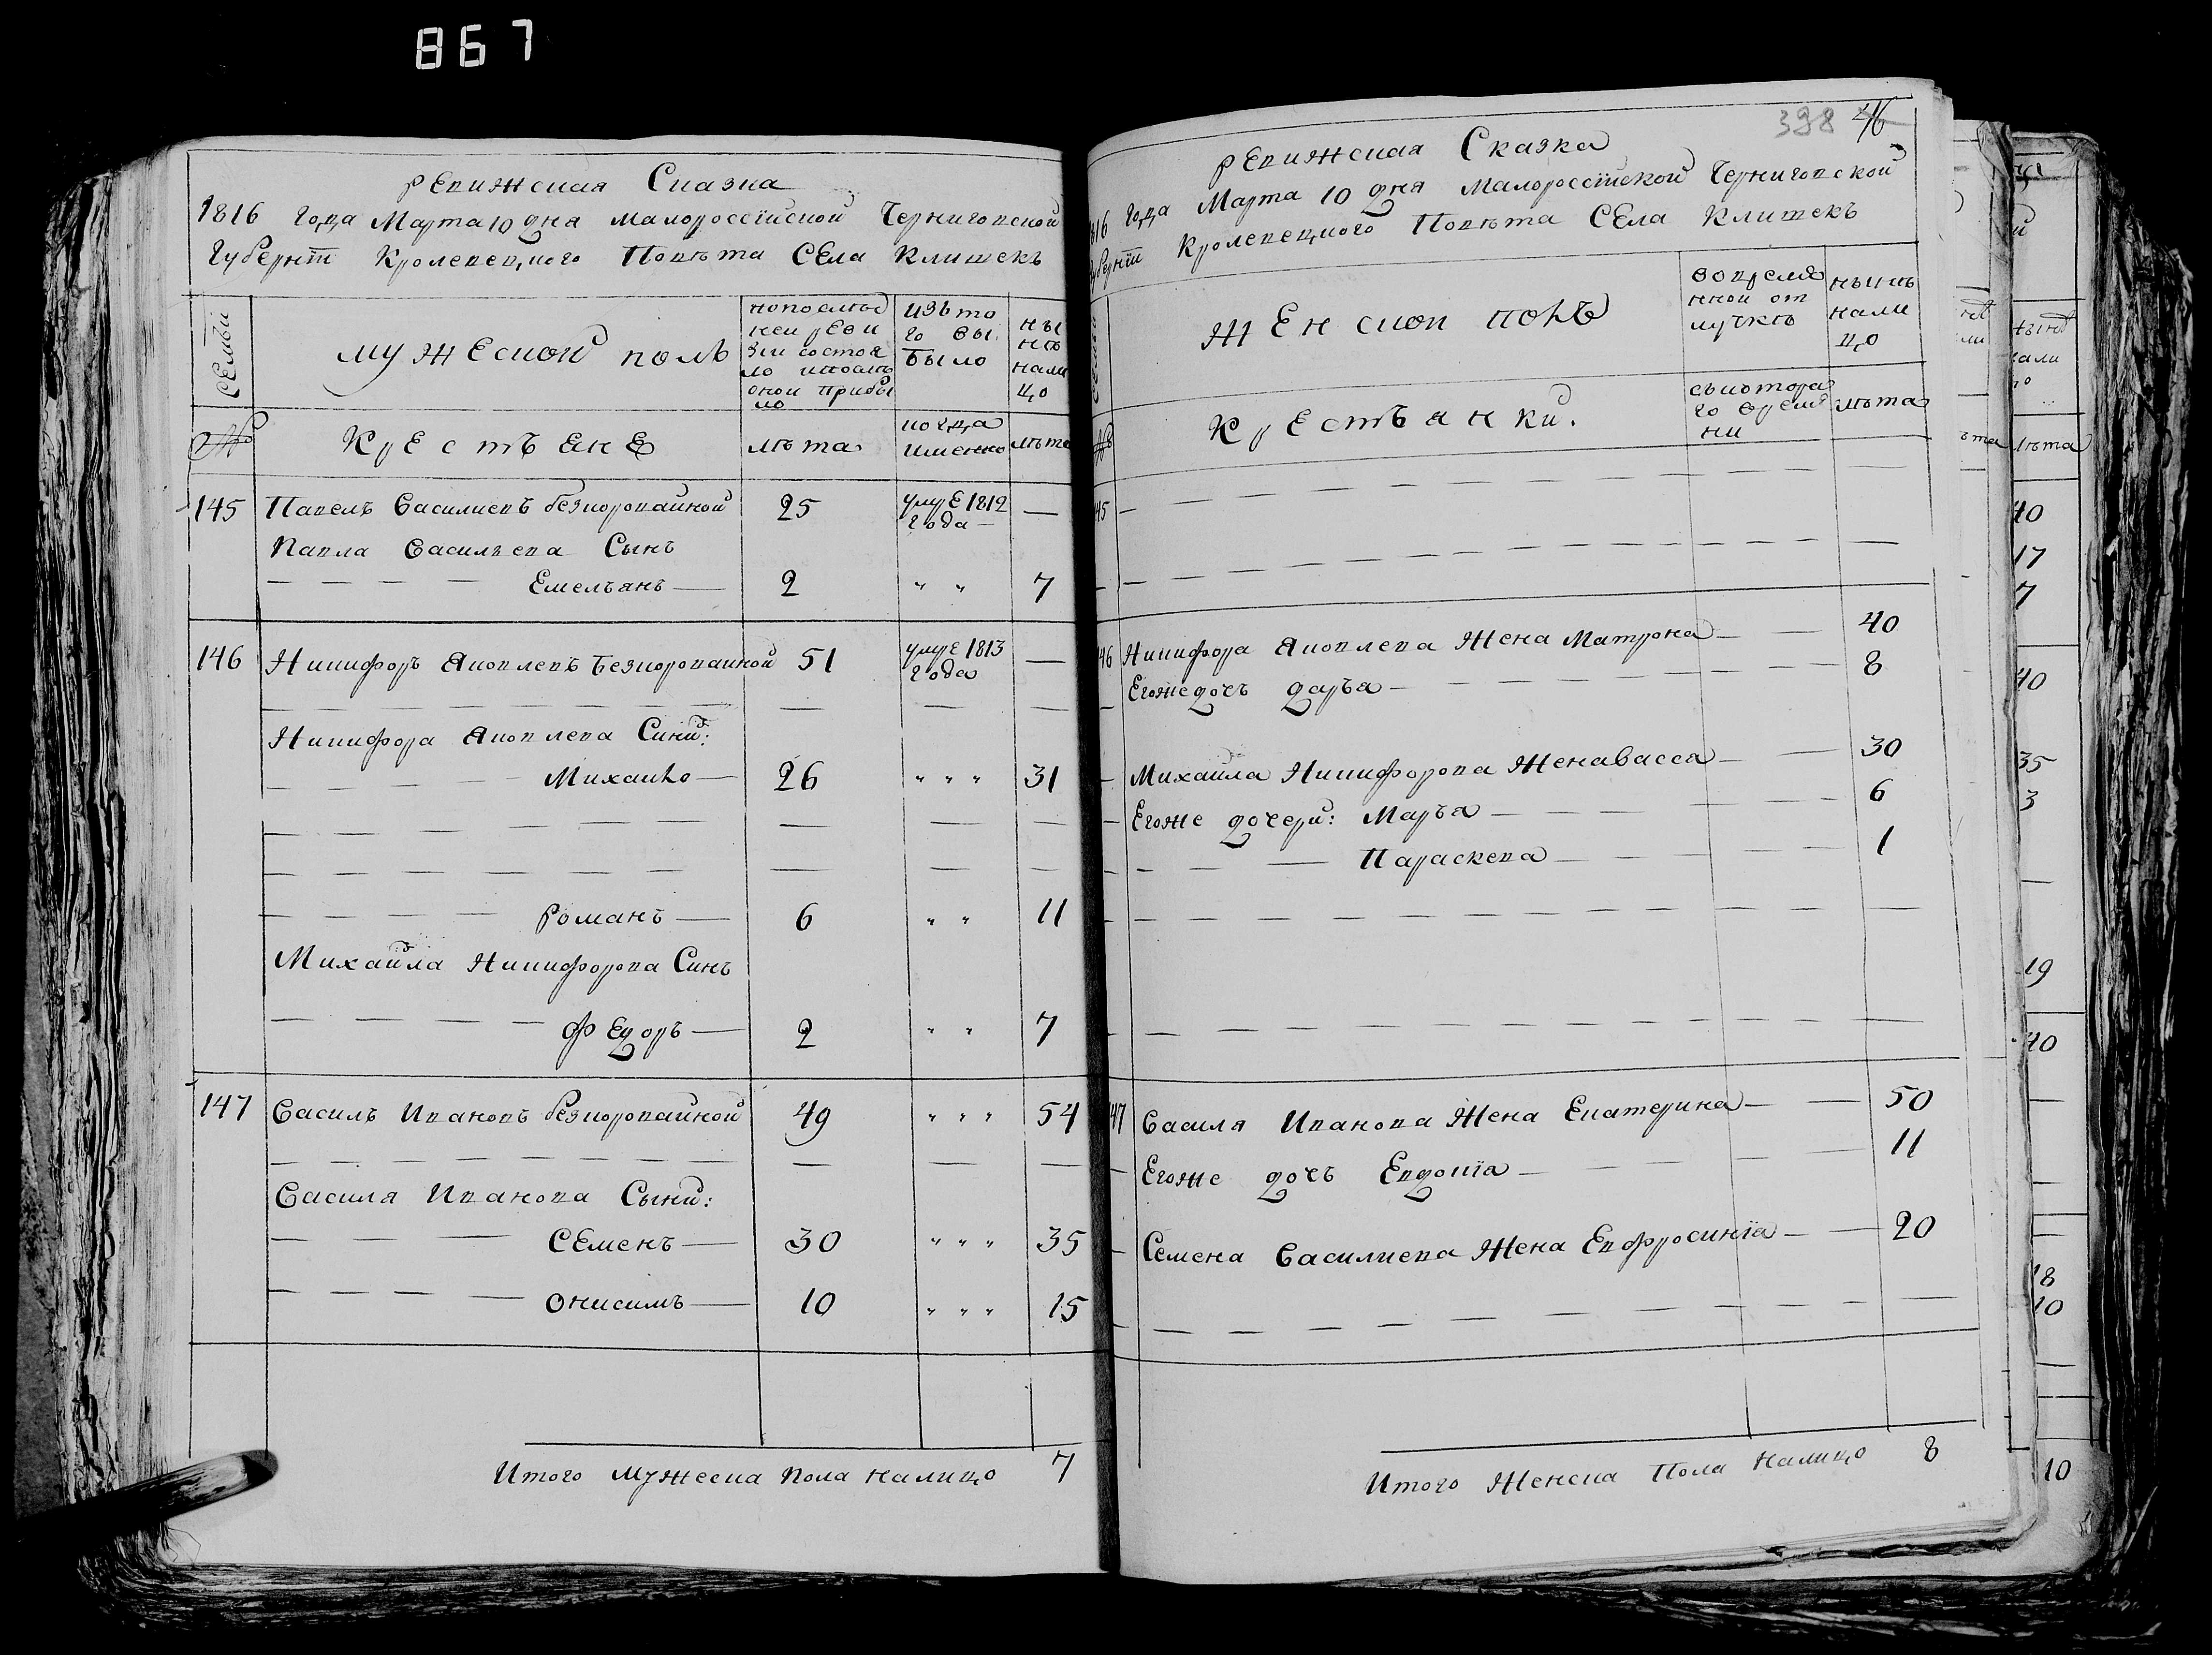 867
Ревижская Сказка
1816 года Марта 10 дня Малороссійской Черниговской
Губерніи Кролевецкого Повѣта Села Клишекъ
Семьи
мужеской полъ
попослѣд
ней реви
зіи состоя
ло ипослѣ
оной прибы
ло
изъ то
го вы
было
ны
нѣ
нали
цо
№
Крестьяне
лѣта
когда
именно
лѣта
145 Павелъ Василиевъ безкоровайной 25 умре 1812 —
года —
Павла Васильева Сынъ
Емельянъ 2 " " 7
146 Никифоръ Яковлевъ безкоровайной 51 умре 1813 —
года
Никифора Яковлева Сини:
Михайло 26 " " " 31
Романъ 6 " " 11
Михайла Никифорова Синъ
Федоръ 2 " " 7
147 Василь Ивановъ безкоровайной 49 " " " 54
Василя Иванова Сыни:
Семенъ 30 " " " 35
Онисимъ 10 " " " 15
Итого мужеска пола налицо 7
398 46
Ревижская Сказка
1816 года Марта 10 дня Малороссійской Черниговской
Губерніи Кролевецкого Повѣта Села Клишекъ
Женской полъ
вовреме
нной от
лучкѣ
нынѣ
нали
цо
№
Крестьянки.
съкотора
го време
ни
лѣта
145
146 Никифора Яковлева Жена Матрона 40
Егоже дочь Дарья 8
Михайла Никифорова Жена Васса 30
Егоже дочери: Марья 6
Параскева 1
147 Василя Иванова Жена Екатерина 50
Егоже дочь Евдокія 11
Семена Василиева Жена Евфросинія 20
Итого Женска Пола налицо 8
лѣта
40
17
7
40
35
3
19
40
18
10
10